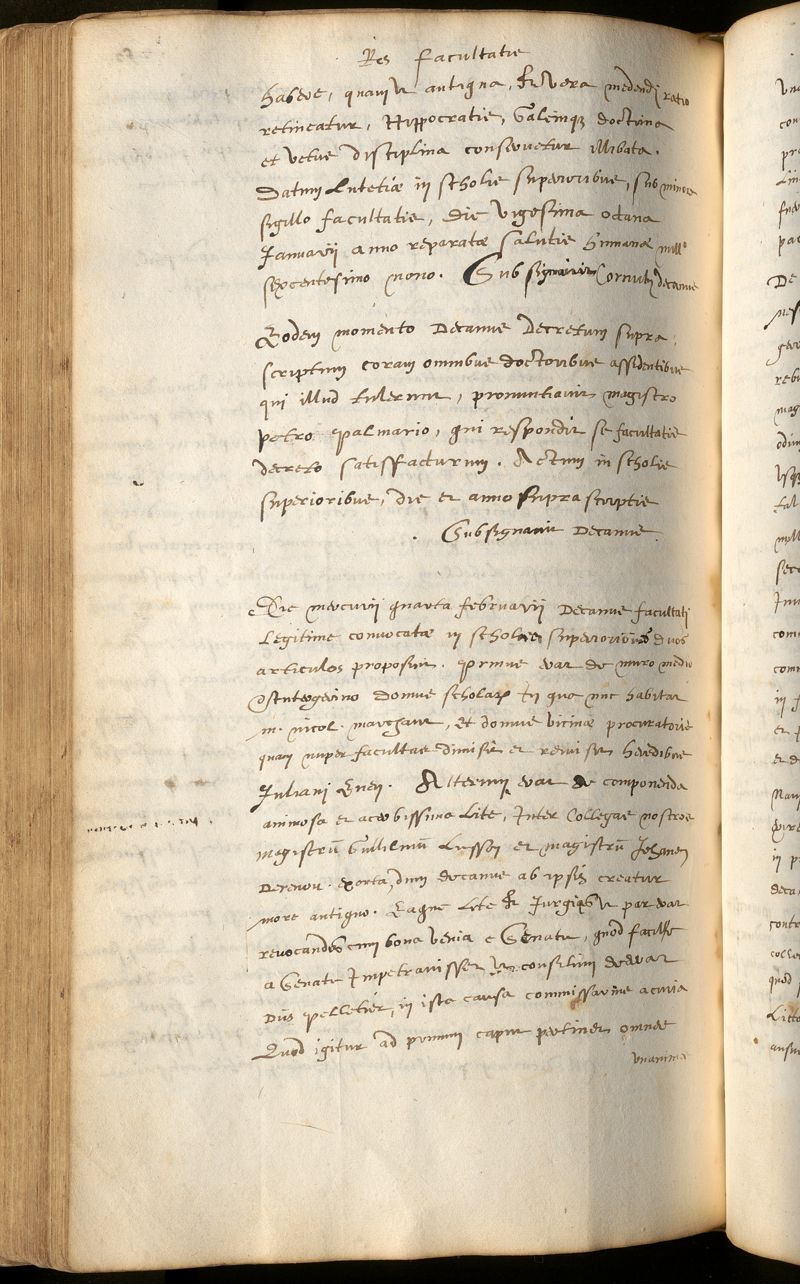 Res facultatis
habere, quam ut antiqua, & vera medendi ratio
retineatur, Hyppocratis, Galenique doctrina
et vetus disciplina conservetur illibata.
Datum Lutetiæ in scholis superioribus, sub minore
sigillo facultatis, die vigesima octava
Januarii anno reparatæ salutis humanæ mill.º
sexcentesimo nono. Subsignavit Cornuti decanus
Eodem momento Decanus Decretum supra
scriptum coram omnibus doctoribus assidentibus
qui illud tulerunt, pronuntiavit magistro
petro palmario, qui respondit se facultatis
decreto satisffacturum. Actum in scholis
superioribus, die et anno supra scriptis
Subsignavit Decanus.
Die mercurii quarta februarii Decanus facultati
Legitime convocatæ in scholis superioribus duos
articulos proposuit. primus erat de muro medio
domus scholarum in quo nunc habitat
m. nicol. et domus vicinæ procuratoris
quam nuper facultas dimisit et remisit heredibus
Juliani. Alterum erat de componenda
animosa et acerbissima Lite, inter Collegas nostros
magistrum Guillelmum et magistrum Johanem
exorta, dum decanus ab ipsis creatur
more antiquo. Eaque Lite & Jurgiis ut par erat
revocandis cum bona venia e Senatu, quod facile
a Senatu Impetravisset ut consilium dederat
Dns pelletier, in ista causa commissarius a curia
Quod igitur ad primum caput pertinet omnes
unanimes